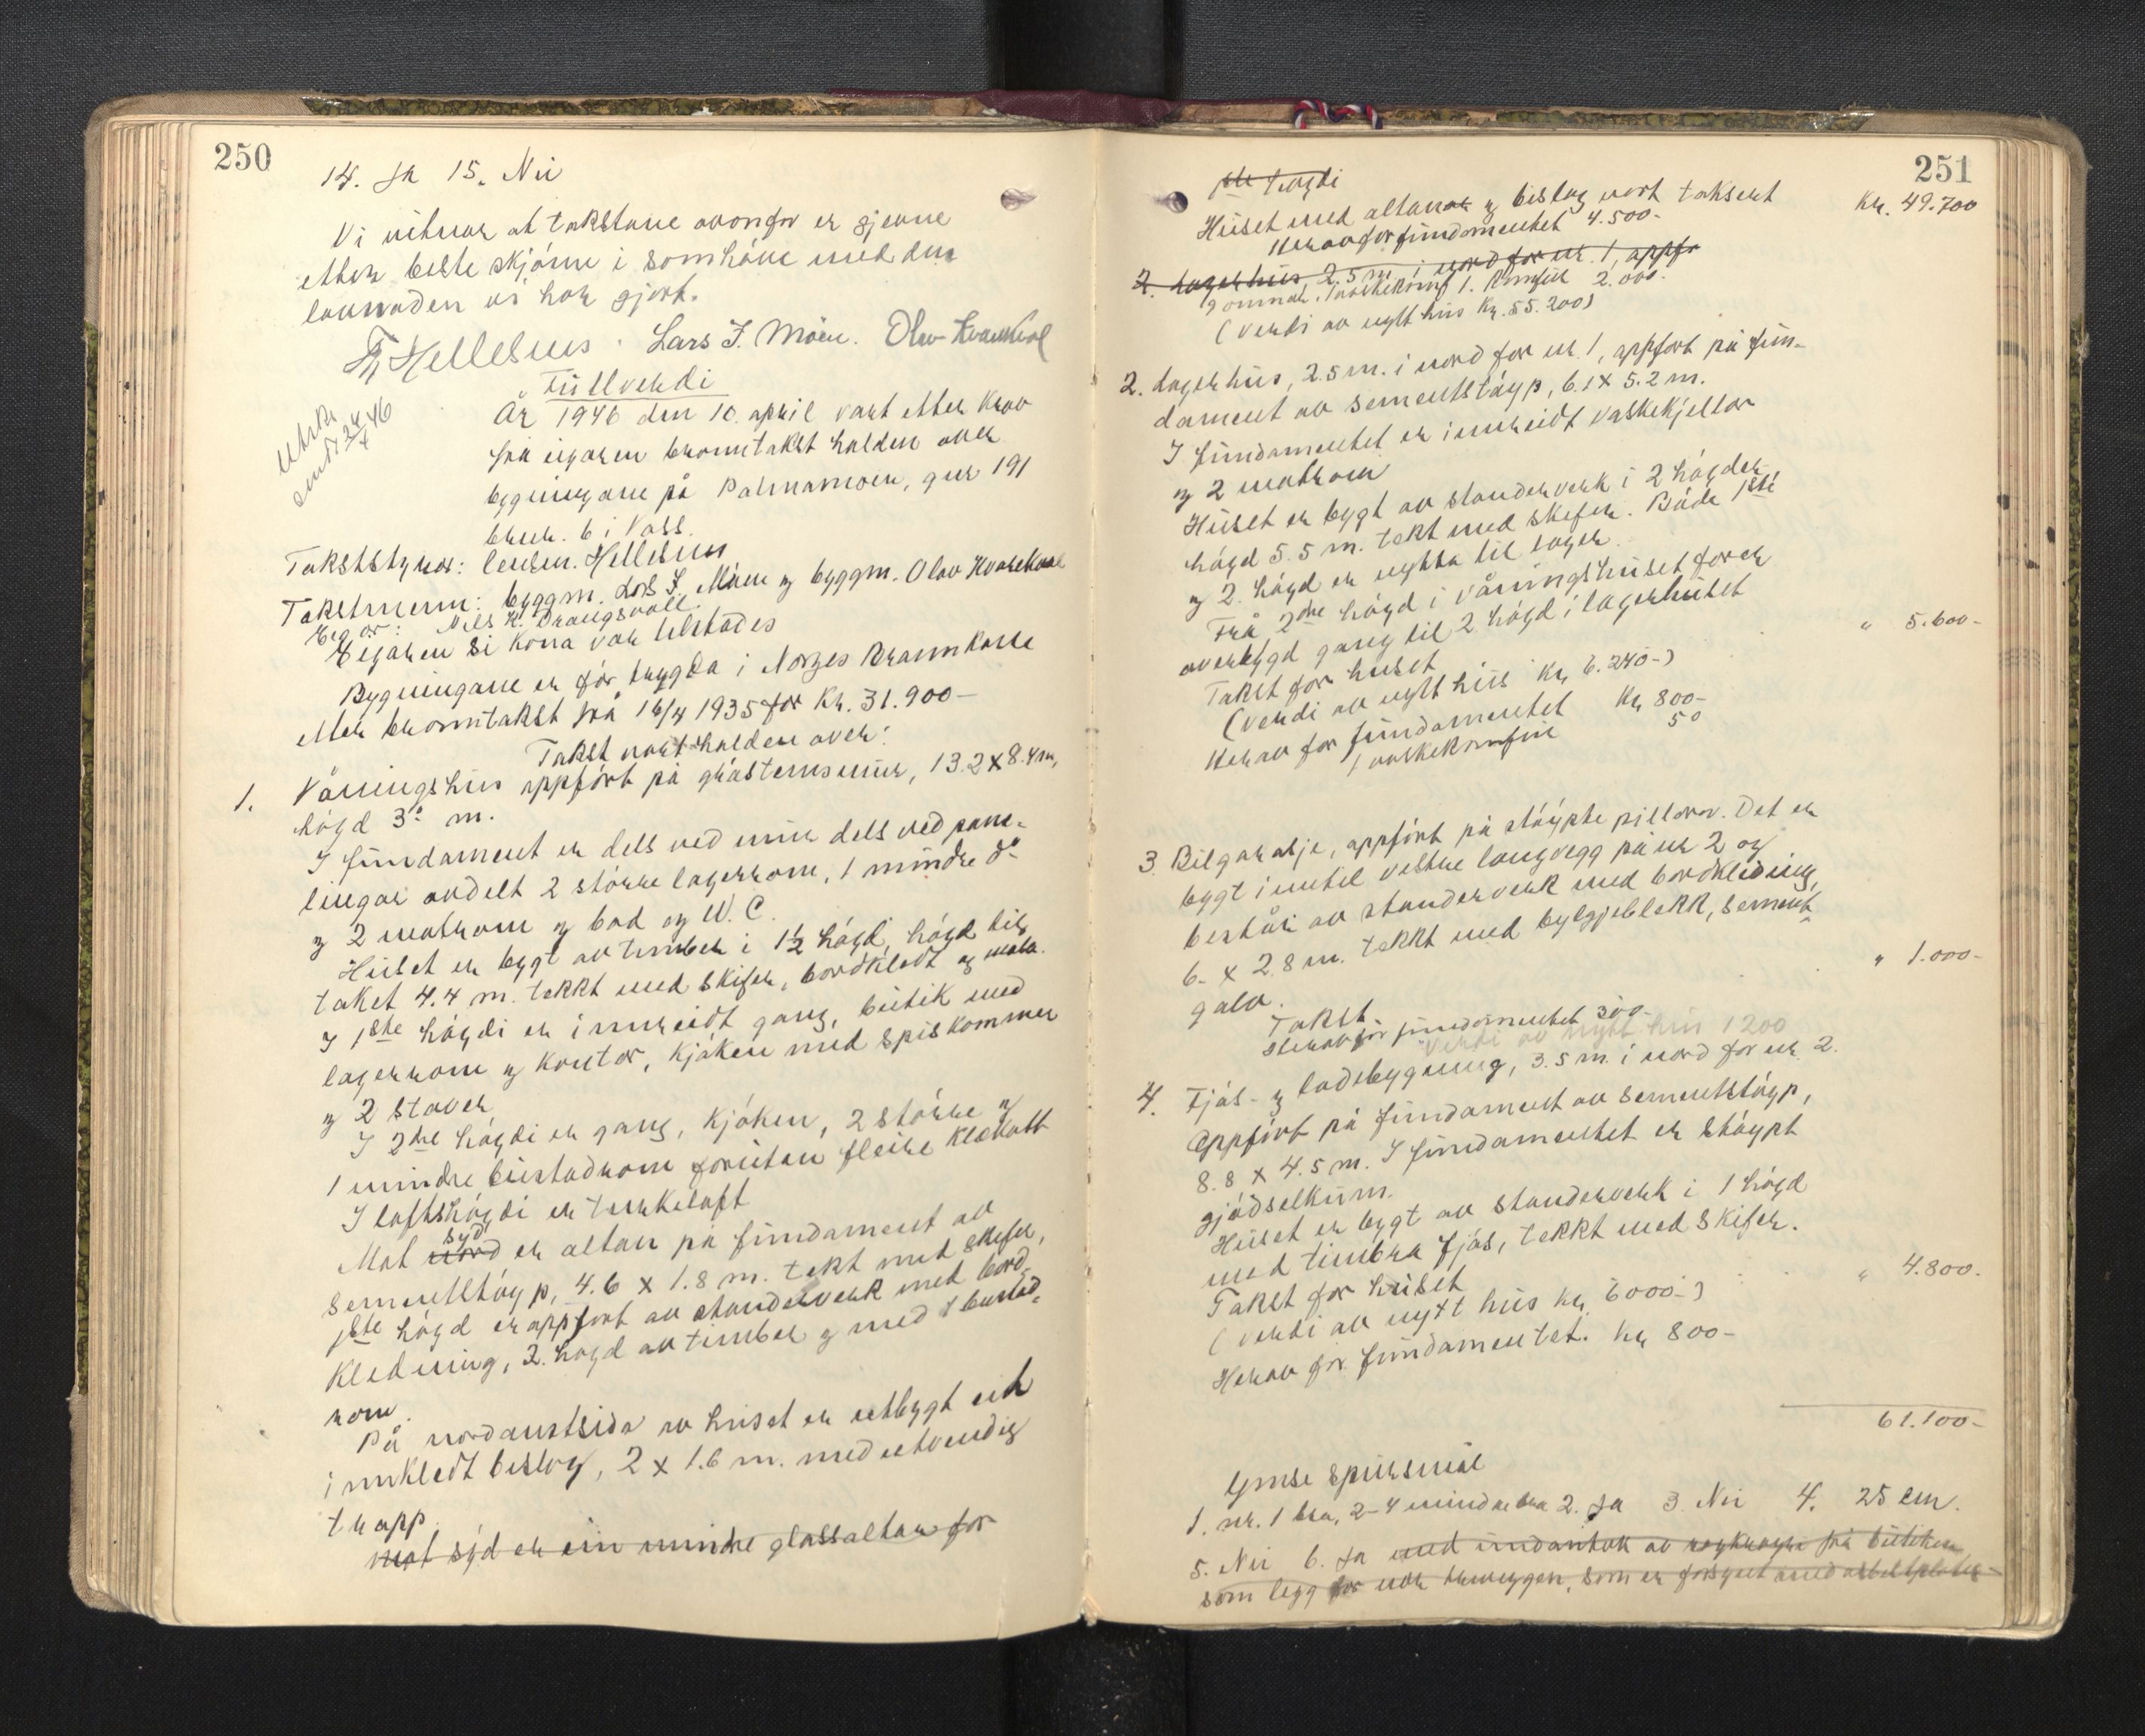 250
14. Ja 15. Nei
Vi vitnar at takstane ovonfor er gjevne
etter beste skjøne i samhøve med den
lovnaden vi har gjort.
Hellesnes. Lars J. Møen. Olav Kvarekval
Fullverdi
Utskr.
sendt 24/4 46
År 1946 den 10. april vart etter krav
frå eigaren branntakst halden over
bygningane på Palmamoen, gnr 191
bruk. 6 i Voss.
Takststyrar: lensm. Hellesnes
Takstmenn: byggm. Lars J. Møen og byggm. Olav Kvarekval
Eigar: Nils K. Draugsvoll.
Eigaren si kona var tilstades
Bygningane er før trygda i Norges Brannkasse
etter branntakst frå 16/4 1935 for Kr. 31.900-
Takst vart halden over:
1. Våningshus appført på gråsteinsmur, 13.2 x 8.4 m,
høgd 3.- m.
I fundament er dels ved mur dels ved pane-
lingar avdelt 2 større lagerrom, 1 mindre do
og 2 matrom og bad og W.C.
Huset er bygt av timber i 1½ høgd, høgd til
taket 4.4 m. tekkt med skifer, bordkledt og mala.
I 1ste høgdi er innreidt gang, butik med
lagerrom og kontor, kjøken med spiskammer
og 2 stover
I 2dre høgdi er gang, kjøken, 2 større og
1 mindre bustadrom foruten fleire klekott
I loftshøgdi er turkeloft
Mot nord syd er altan på fundament av
sementstøyp, 4.6 x 1.8 m. tekt med skifer,
1ste høgd er appført av standerverk med bord-
kledning, 2. høgd av timber og med 1 bustad-
rom.
På nordaustsida av huset er utbygt eit
innkledt bislag, 2 x 1.6 m. med utvendig
trapp.
Mot syd er ein mindre glassaltan for
251
1ste høgdi
Huset med altanar og bislag vart taksert Kr. 49.700
Herav for fundamentet 4.500-
2. Lagerhus, 2.5 m. i nord for nr. 1, appfø
2.000.
(Verdi av nytt hus Kr. 55.200)
2. Lagerhus, 2.5 m. i nord for nr. 1, appført på fun-
dament av sementstøyp, 6.1 x 5.2 m.
I fundamentet er innreidt vaskekjellar
og 2 matrom
Huset er bygt av standerverk i 2 høgder,
høgd 5.5 m. tekt med skifer. Både 1ste
og 2. høgd er nytta til lager.
Frå 2dre høgd i våningshuset fører
overbygd gang til 2 høgd i lagerhuset
Takst for huset " 5.600-
(Verdi av nytt hus kr. 6.240-)
Herav for fundamentet Kr 800-
1 vaskekomfur 50
3. Bilgarasje, appført på støypte pillarar. Det er
bygt inntil vestre langvegg på nr 2 og
består av standerverk med bordkledning,
6.- x 2.8 m. tekkt med bylgjeblekk, sement-
golv.
Takst. " 1.000-
Herav for fundamentet 300-
Verdi av nytt hus 1200
4. Fjøs- og ladebygning, 3.5 m. i nord for nr. 2.
Appført på fundament av sementstøyp,
8.8 x 4.5 m. I fundamentet er støypt
gjødselkum.
Huset er bygt av standerverk i 1 høgd
med timbra fjøs, tekkt med skifer.
Takst for huset " 4.800.
(Verdi av nytt hus kr. 6000-)
Herav for fundamentet. Kr 800-
61.100-
Ymse spursmål
1. nr. 1 bra, 2-4 mindre bra 2. Ja 3. Nei 4. 25 cm.
5. Nei 6. Ja med undantak av røykrøyr frå butiken
som ligg for nær treveggen, som er forsynt med asbestplater